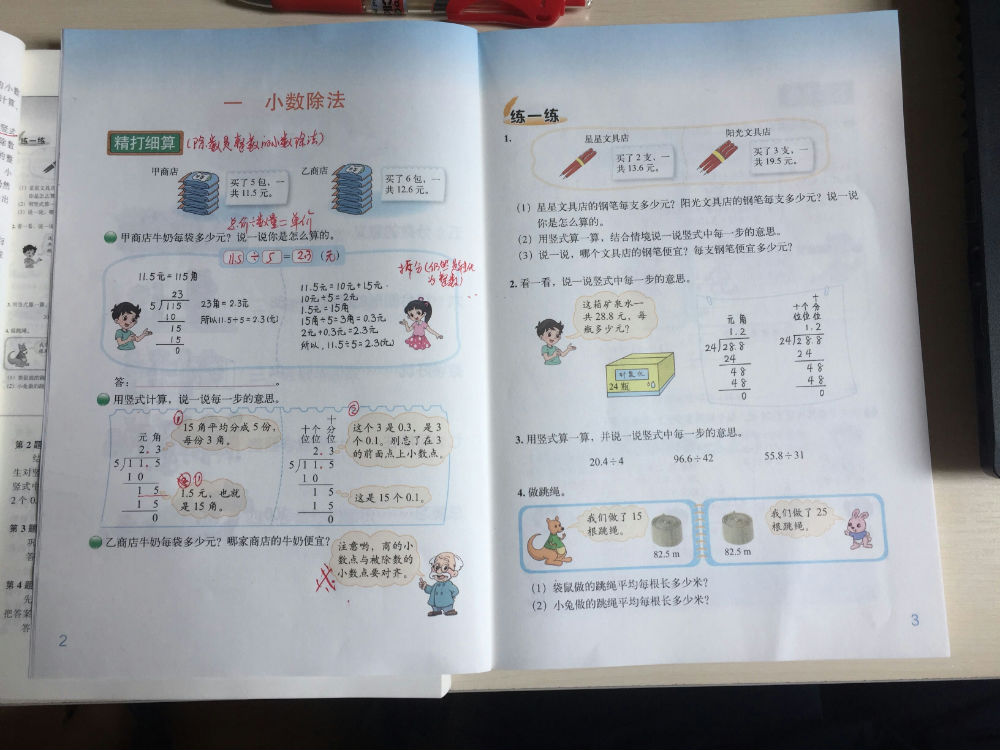 一 小数除法
精打细算
(除数是整数的小数除法)
甲商店
买了5包，一
共11.5元。
乙商店
买了6包，一
共12.6元。
总价÷数量=单价
甲商店牛奶每袋多少元？说一说你是怎么算的。
11.5 ÷ 5 = 2.3 (元)
11.5元=115角
23
5 115
10
15
15
0
23角=2.3元
所以11.5÷5=2.3(元)
11.5元=10元+15元
10元÷5=2元
1.5元=15角
15角÷5=3角=0.3元
2元+0.3元=2.3元
所以，11.5÷5=2.3(元)
答：。
用竖式计算，说一说每一步的意思。
元 角
2. 3
5 1 1. 5
1 0
1 5
1 5
0
①
15角平均分成5份，
每份3角。
①
1.5元，也就
是15角。
十
十 个 分
位 位 位
2. 3
5 1 1. 5
1 0
1 5
1 5
0
②
这个3是0.3，是3
个0.1。别忘了在3
的前面点上小数点。
这是15个0.1。
乙商店牛奶每袋多少元？哪家商店的牛奶便宜？
注意哟，商的小
数点与被除数的
小数点要对齐。
2
练一练
1.
星星文具店
买了2支，一
共13.6元。
阳光文具店
买了3支，一
共19.5元。
(1) 星星文具店的钢笔每支多少元？阳光文具店的钢笔每支多少元？说一说
你是怎么算的。
(2) 用竖式算一算，结合情境说一说竖式中每一步的意思。
(3) 说一说，哪个文具店的钢笔便宜？每支钢笔便宜多少元？
2. 看一看，说一说竖式中每一步的意思。
这箱矿泉水一
共28.8元，每
瓶多少元？
24 瓶
元 角
1. 2
24 2 8. 8
2 4
4 8
4 8
0
十
十 个 分
位 位 位
1. 2
24 2 8. 8
2 4
4 8
4 8
0
3. 用竖式算一算，并说一说竖式中每一步的意思。
20.4÷4 96.6÷42 55.8÷31
4. 做跳绳。
我们做了15
根跳绳。
82.5 m
82.5 m
我们做了25
根跳绳。
(1) 袋鼠做的跳绳平均每根长多少米？
(2) 小兔做的跳绳平均每根长多少米？
3
第2题
第3题
第4题